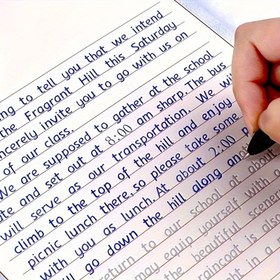 ng to tell you that we intend
the Fragrant Hill this Saturday
ncerely invite you to go with us on
of our class.
We are supposed to gather at the school
te and set out at 8:00 am sharp. The bus
will serve as our transportation. We wi
climb to the top of the hill and enjoy
picnic lunch there, so please take some
with you as lunch. At about 2:00 p
ll go down the hill along an
return to our school at about
may equip yourself
the beautiful scener
raincoat is in